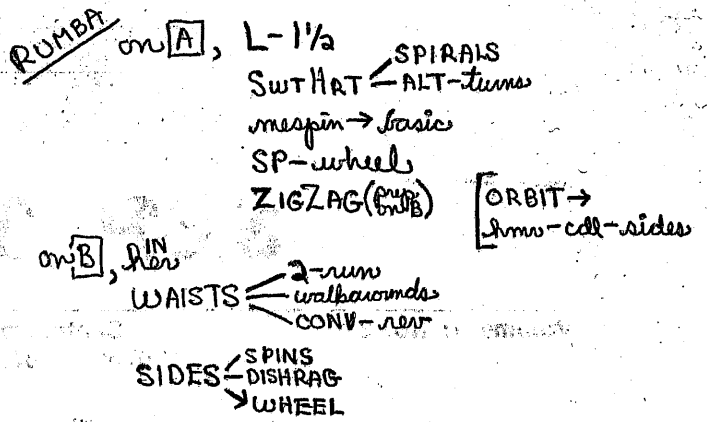 RUMBA
on A, L-1½
SWTHRT SPIRALS
ALT-turns
mespin→basic
SP-wheel
ZIGZAG(prep on B)
[ORBIT→
hmr-coll-sides
on B, her IN
WAISTS 2-run
walkarounds
CONV-rev
SIDES SPINS
DISHRAG
WHEEL